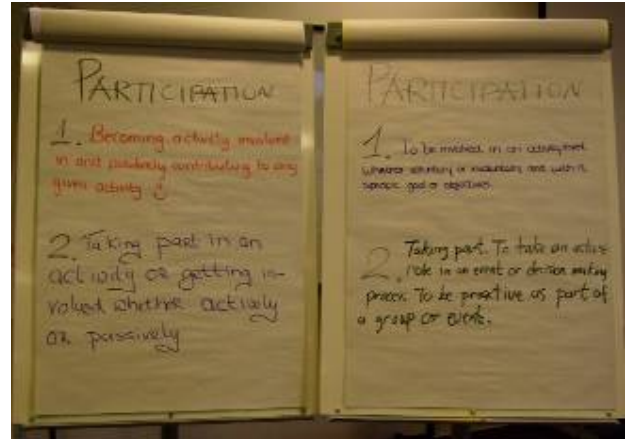 PARTICIPATION
1. Becoming actively involved
in and positively contributing to any
given activity
2. Taking part in an
activity or getting in-
volved whether actively
or passively
PARTICIPATION
1. To be involved in an activity/event
whether voluntary or involuntary and with a
specific goal or objectives.
2. Taking part. To take an active
role in an event or decision making
process. To be proactive as part of
a group or event.